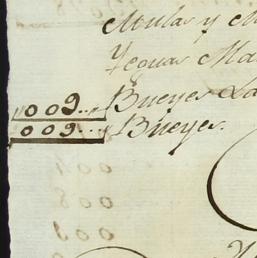 Mulas y M
Yeguas Ma
009.. Bueyes La
009.. Bueyes.